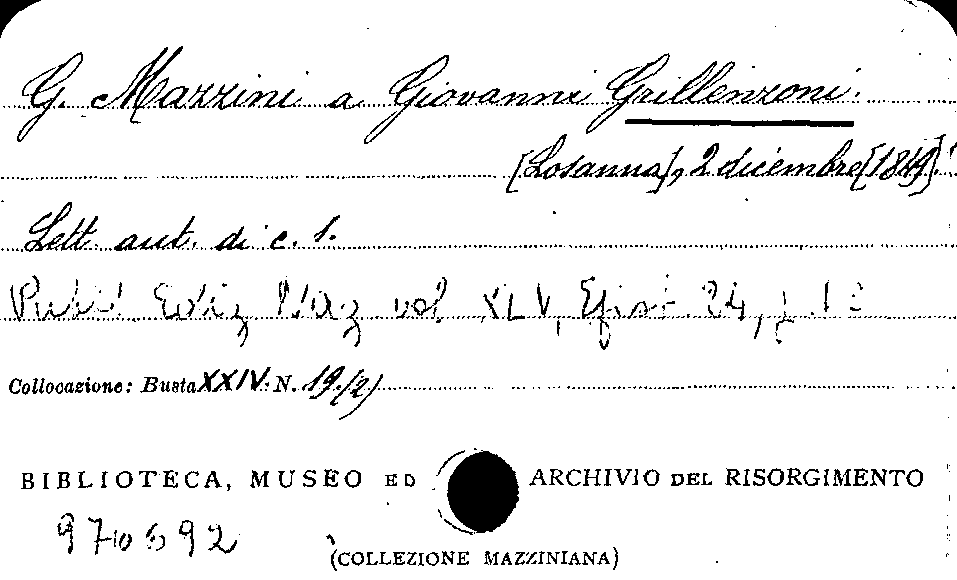 G. Mazzini a Giovanni Grillenzoni.
[Losanna], 2 dicembre [1849].
Lett. aut. di c. 1.
Ediz. Naz. vol. XLV, Epist. 24, p.
Collocazione: Busta XXIV: N. 19.(2)
BIBLIOTECA, MUSEO ED ARCHIVIO DEL RISORGIMENTO
(COLLEZIONE MAZZINIANA)